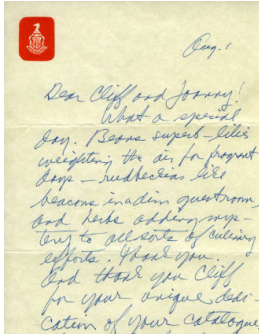 Aug. 1
Dear Cliff and Joanny!
What a special
day. Beans superb - lilies
weighting the air for fragrant
days - rudbeckias like
beacons in dim guestroom
and herbs adding mys-
tery to all sorts of culinary
efforts. Thank you.
And thank you Cliff
for your unique dedi-
cation of your catalogue